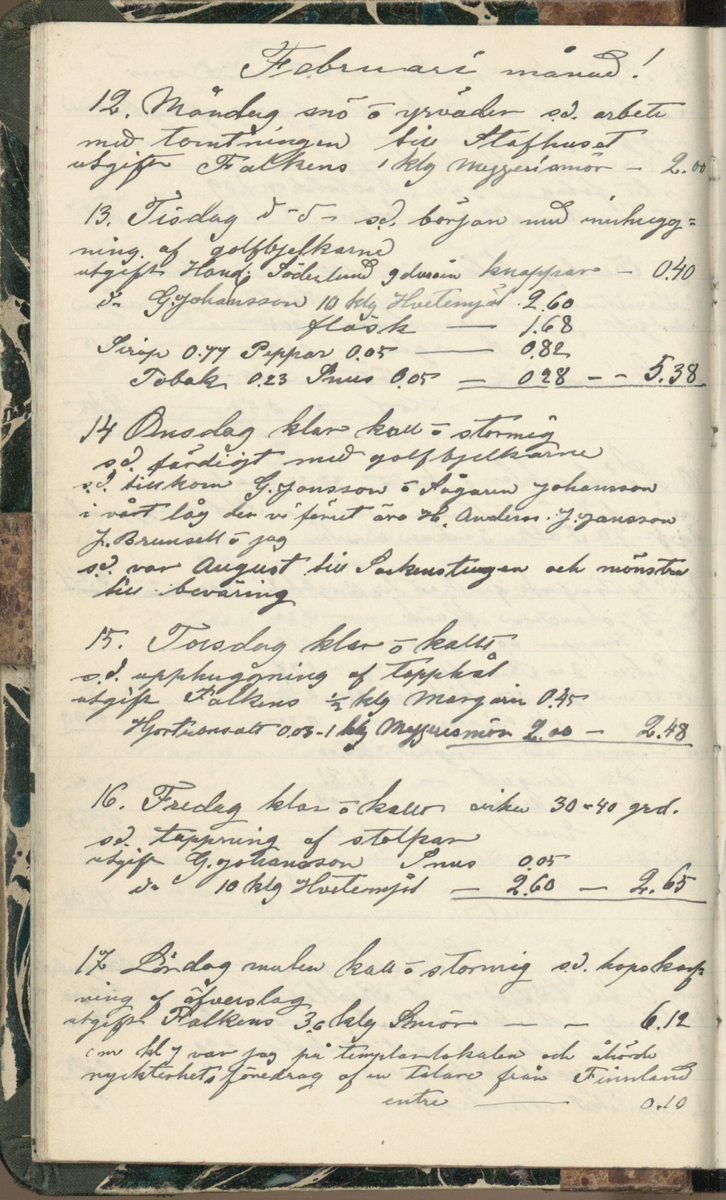 Februari månad!
12. Måndag snö o yrväder s.d. arbete
med tomtningen till Stafhuset
utgift Falkens 1 klg Mejjerismör – 2.00
13. Tisdag d–o– s.d. början med inhugg=
ning af golfbjelkarne
utgift Hand. Söderlund 9 dusin knappar – 0.40
d:o G. Johansson 10 klg Hvetemjöl 2.60
fläsk — 1.68
Sirap 0.77 Peppar 0.05 — 0.82
Tobak 0.23 Snus 0.05 – 0.28 – – 5.38
14 Onsdag klar kall o stormig
s.d. färdigt med golfbjelkarne
s.d. tillkom G. Jonsson o Sågaren Johansson
i vårt låg der vi förut äro H. Anders. J. Jansson
J. Brunsell o jag
s.d. var August till Sockenstugan och mönstra
till beväring
15. Torsdag klar o kallt
s.d. upphuggning af tapphål
utgift Falkens ½ klg Margarin 0.45
Hjorthornsalt 0.03 – 1 klg Mejjerismör 2.00 – 2.48
16. Fredag klar o kallt cirka 30-40 grd.
s.d. tappning af stolpar
utgift G. Johansson Snus 0.05
d:o 10 klg Hvetemjöl – 2.60 – 2.65
17 Lördag mulen kall o stormig s.d. hopskarf
ning af öfverslag
utgift Falkens 3,6 klg Smör – – 6.12
em kl 7 var jag på templarlokalen och åhörde
nyckterhets föredrag af en talare från Finnland
entre — 0.10